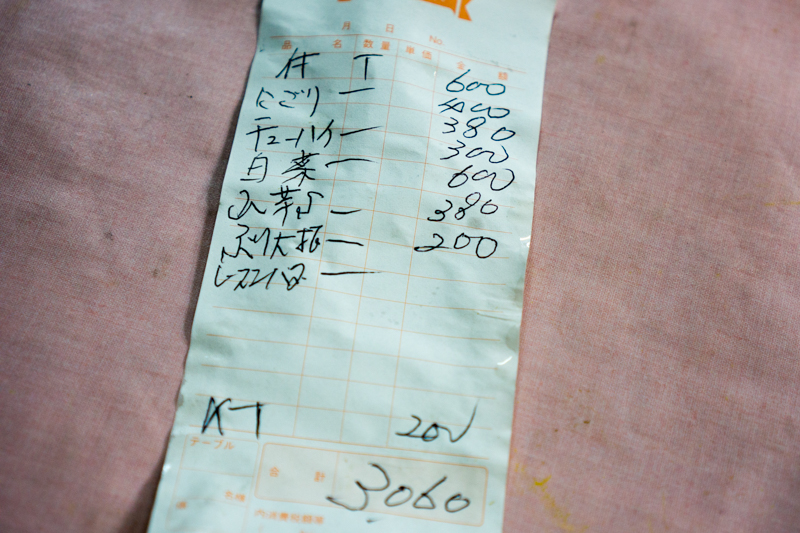 月 日 No.
品名 数量 単価 金額
T 600
にごり 一 400
チューハイ 一 380
白菜 一 300
一 600
ぶり大根 一 380
一 200
KT 200
テーブル
合計 3060
係 名様
内消費税額等